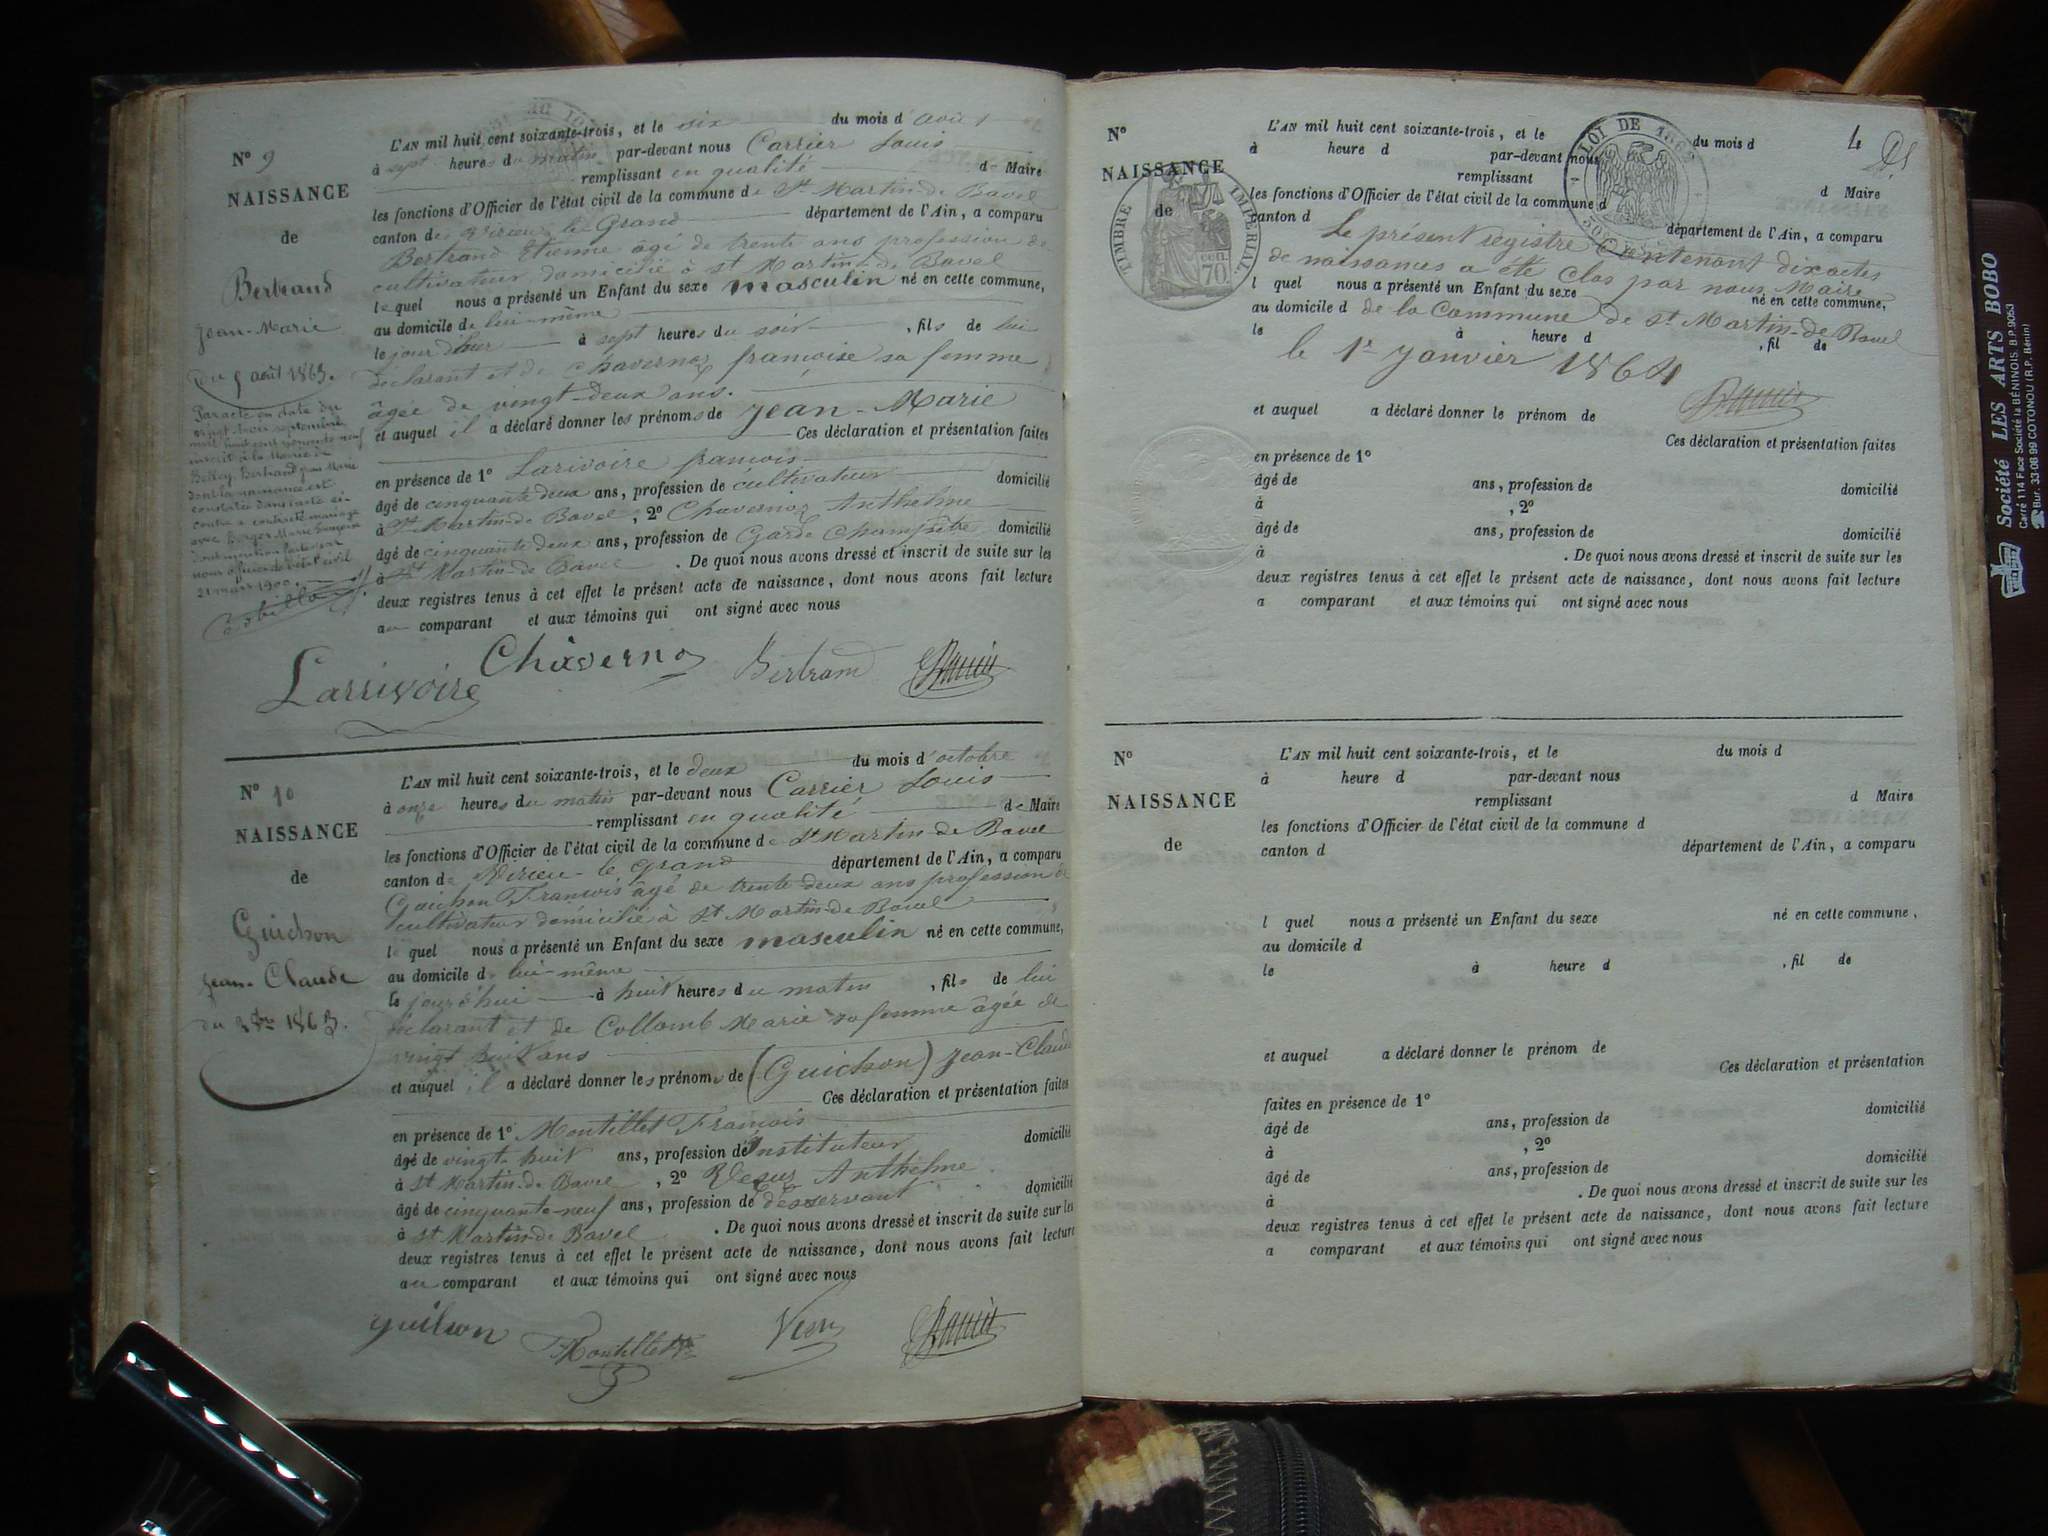 N° 9
NAISSANCE
de
Bertrand
Jean-Marie
du 5 août 1863.
Par acte en date du
vingt-trois septembre
mil huit cent
inscrit à la Mairie de
Belley, Bertrand Jean Marie
dont la naissance est
constatée dans l'acte ci-
contre a contracté mariage
avec Berger Marie Françoise
Dont mention faite par
nous officier de l'état civil
21 mars 1900.
L'AN mil huit cent soixante-trois, et le six du mois d'août
à sept heures du matin par-devant nous Carrier Louis
remplissant en qualité de Maire
les fonctions d'Officier de l'état civil de la commune de St Martin-de Bavel
canton de Virieu-le-Grand département de l'Ain, a comparu
Bertrand Etienne âgé de trente ans profession de
cultivateur domicilié à St Martin-de Bavel
lequel nous a présenté un Enfant du sexe masculin né en cette commune,
au domicile de lui-même
le jour d'hier à sept heures du soir, fils de lui
déclarant et de Chavernoz françoise sa femme
âgée de vingt-deux ans.
et auquel il a déclaré donner les prénoms de Jean-Marie
Ces déclaration et présentation faites
en présence de 1° Larivoire françois
âgé de cinquante deux ans, profession de cultivateur domicilié
à St Martin-de Bavel, 2° Chavernoz Anthelme
âgé de cinquante deux ans, profession de Garde Champêtre domicilié
à St Martin-de Bavel. De quoi nous avons dressé et inscrit de suite sur les
deux registres tenus à cet effet le présent acte de naissance, dont nous avons fait lecture
au comparant et aux témoins qui ont signé avec nous
Larrivoire Chavernoz Bertrand
N° 10
NAISSANCE
de
Guichon
Jean-Claude
du 2 8bre 1863.
L'AN mil huit cent soixante-trois, et le deux du mois d'octobre
à onze heures du matin par-devant nous Carrier Louis
remplissant en qualité de Maire
les fonctions d'Officier de l'état civil de la commune de St Martin-de Bavel
canton de Virieu-le-Grand département de l'Ain, a comparu
Guichon François âgé de trente deux ans profession de
cultivateur domicilié à St Martin-de Bavel
lequel nous a présenté un Enfant du sexe masculin né en cette commune,
au domicile de lui-même
le jour d'hui à huit heures du matin, fils de lui
déclarant et de Collomb Marie sa femme âgée de
vingt huit ans
et auquel il a déclaré donner les prénoms de (Guichon) Jean-Claude
Ces déclaration et présentation faites
en présence de 1° Montillet François
âgé de vingt-huit ans, profession d'Instituteur domicilié
à St Martin-de Bavel, 2° Anthelme
âgé de cinquante-neuf ans, profession de desservant domicilié
à St Martin-de Bavel. De quoi nous avons dressé et inscrit de suite sur les
deux registres tenus à cet effet le présent acte de naissance, dont nous avons fait lecture
au comparant et aux témoins qui ont signé avec nous
guichon Montillet
4
N°
NAISSANCE
de
TIMBRE IMPÉRIAL
CEN. 70
LOI DE 1862
L'AN mil huit cent soixante-trois, et le du mois d
à heure d par-devant nous
remplissant d Maire
les fonctions d'Officier de l'état civil de la commune d
canton d département de l'Ain, a comparu
Le présent registre contenant dix actes
de naissances a été clos par nous, Maire
l quel nous a présenté un Enfant du sexe né en cette commune,
au domicile d de la Commune de St Martin-de Bavel
le à heure d , fil de
le 1er Janvier 1864
et auquel a déclaré donner le prénom de
Ces déclaration et présentation faites
en présence de 1°
âgé de ans, profession de domicilié
à , 2°
âgé de ans, profession de domicilié
à . De quoi nous avons dressé et inscrit de suite sur les
deux registres tenus à cet effet le présent acte de naissance, dont nous avons fait lecture
a comparant et aux témoins qui ont signé avec nous
N°
NAISSANCE
de
L'AN mil huit cent soixante-trois, et le du mois d
à heure d par-devant nous
remplissant d Maire
les fonctions d'Officier de l'état civil de la commune d
canton d département de l'Ain, a comparu
l quel nous a présenté un Enfant du sexe né en cette commune,
au domicile d
le à heure d , fil de
et auquel a déclaré donner le prénom de
Ces déclaration et présentation
faites en présence de 1°
âgé de ans, profession de domicilié
à , 2°
âgé de ans, profession de domicilié
à . De quoi nous avons dressé et inscrit de suite sur les
deux registres tenus à cet effet le présent acte de naissance, dont nous avons fait lecture
a comparant et aux témoins qui ont signé avec nous
Société LES ARTS BOBO
Carré 114 Face Société la BÉNINOIS. B.P. 9053
Bur. 33 08 99 COTONOU (R.P. Bénin)